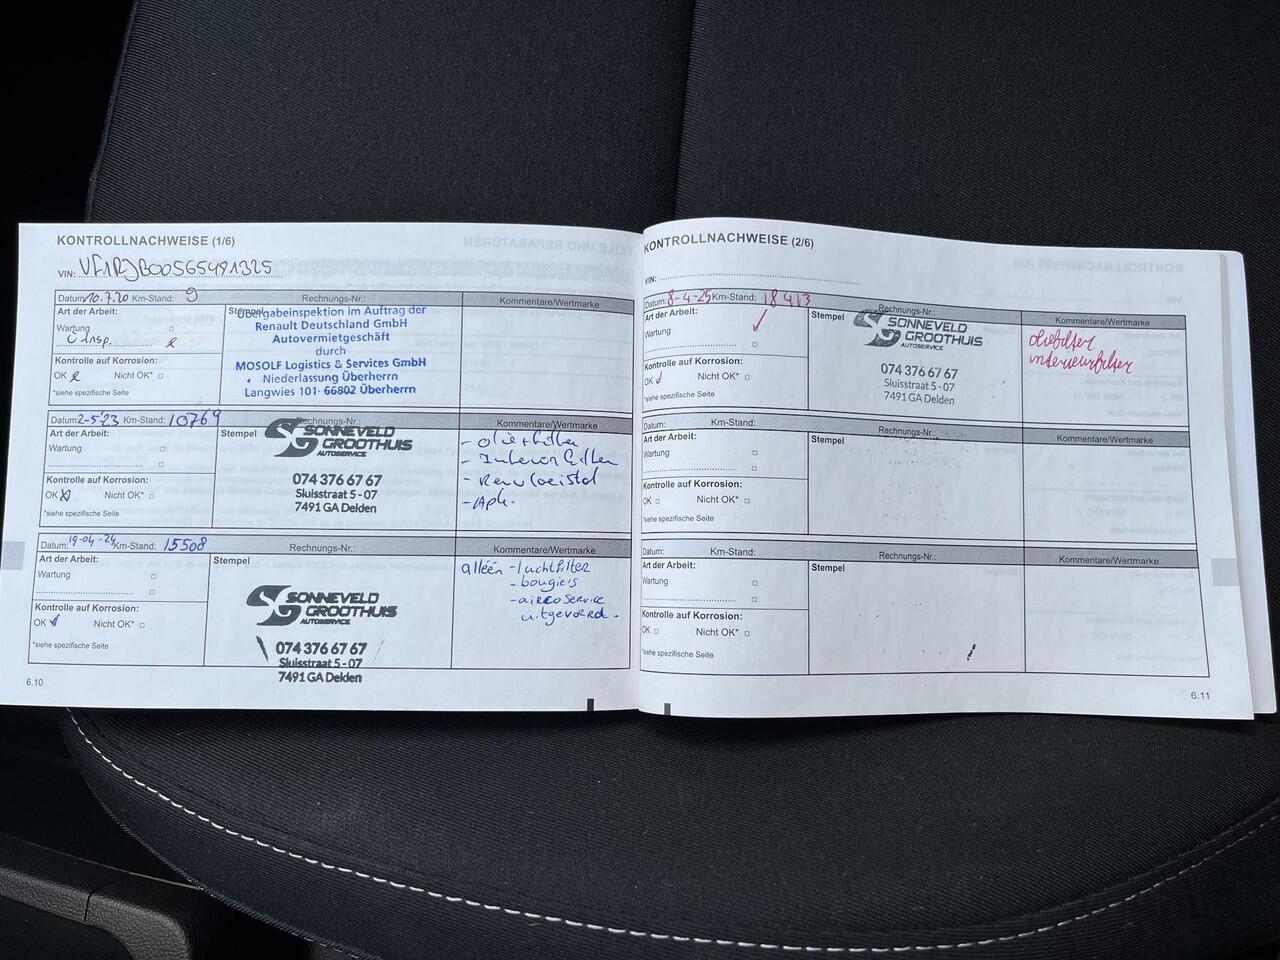 KONTROLLNACHWEISE (1/6)
VIN: VF1RJB00565491325
Datum: 10.7.20 Km-Stand: 9
Rechnungs-Nr.:
Kommentare/Wertmarke
Art der Arbeit:
Wartung
Ü Insp.
Kontrolle auf Korrosion:
OK Nicht OK*
*siehe spezifische Seite
Stempel
Übergabeinspektion im Auftrag der
Renault Deutschland GmbH
Autovermietgeschäft
durch
MOSOLF Logistics & Services GmbH
Niederlassung Überherrn
Langwies 101· 66802 Überherrn
Datum: 2-5-'23 Km-Stand: 10769
Kommentare/Wertmarke
Art der Arbeit:
Wartung
Kontrolle auf Korrosion:
OK Nicht OK*
*siehe spezifische Seite
Stempel
SONNEVELD
GROOTHUIS
AUTOSERVICE
074 376 67 67
Sluisstraat 5 - 07
7491 GA Delden
- olie + filter
- Interieur filter
- Remvloeistof
- Apk.
Datum: 19-04-24 Km-Stand: 15508
Rechnungs-Nr.:
Kommentare/Wertmarke
Art der Arbeit:
Wartung
Kontrolle auf Korrosion:
OK Nicht OK*
*siehe spezifische Seite
Stempel
SONNEVELD
GROOTHUIS
AUTOSERVICE
074 376 67 67
Sluisstraat 5 - 07
7491 GA Delden
alléén - luchtfilter
- bougie's
- aircoservice
uitgevoerd.
6.10
KONTROLLNACHWEISE (2/6)
VIN:
Datum: 8-4-25 Km-Stand: 18413
Rechnungs-Nr.:
Kommentare/Wertmarke
Art der Arbeit:
Wartung
Kontrolle auf Korrosion:
OK Nicht OK*
*siehe spezifische Seite
Stempel
SONNEVELD
GROOTHUIS
AUTOSERVICE
074 376 67 67
Sluisstraat 5 - 07
7491 GA Delden
oliefilter
interieurfilter
Datum: Km-Stand:
Rechnungs-Nr.:
Kommentare/Wertmarke
Art der Arbeit:
Wartung
Kontrolle auf Korrosion:
OK Nicht OK*
*siehe spezifische Seite
Stempel
Datum: Km-Stand:
Rechnungs-Nr.:
Kommentare/Wertmarke
Art der Arbeit:
Wartung
Kontrolle auf Korrosion:
OK Nicht OK*
*siehe spezifische Seite
Stempel
6.11